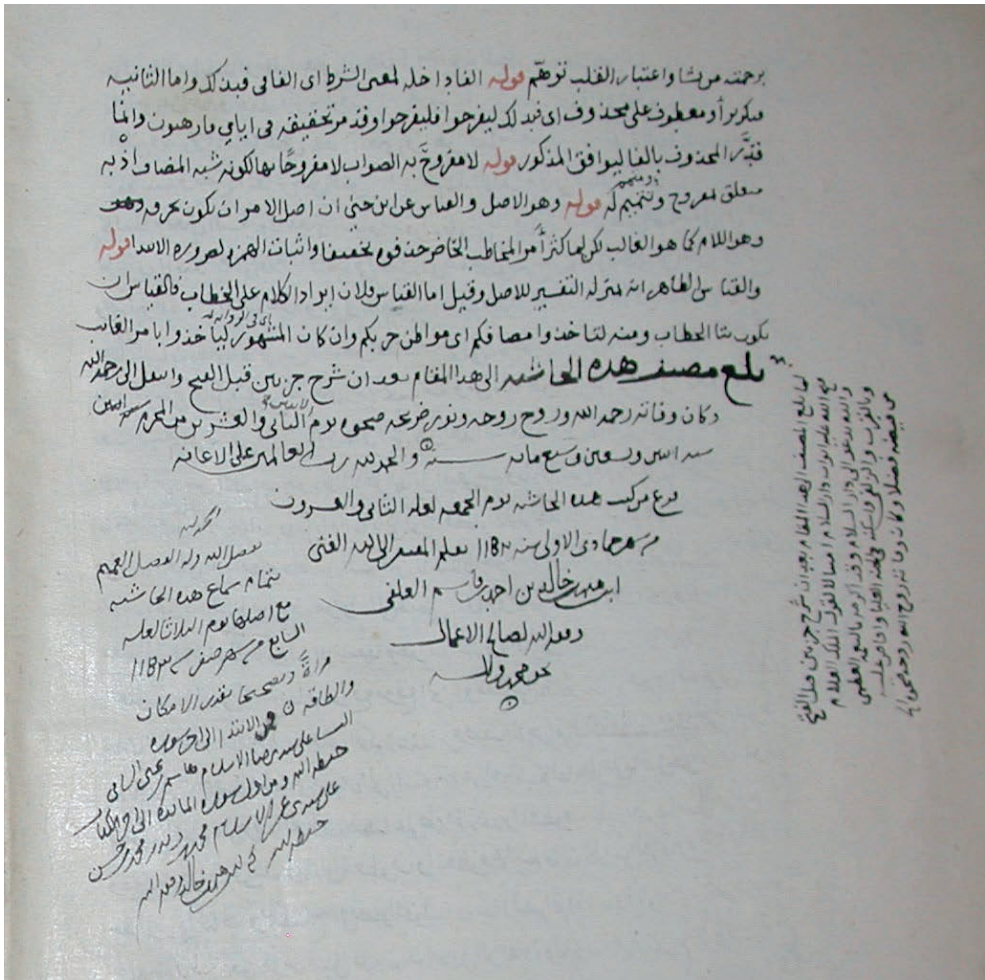 برحمته من يشا واعتبار القلب توهّم قوله الفا داخله لمعنى الشرط اى الفا فى فبذلك واما الثانيه
فتكرير أو معطوف على محذوف اى فبذلك ليفرحوا فليفرحوا وقد مر تحقيقه فى اياى فارهبون وانما
قدّر المحذوف بالفا ليوافق المذكور قوله لا مفروحَ به الصواب لا مفروحًا به لكونه شبه المضاف اذ به
متعلق لمفروح وتتميم له قوله وهو الاصل والقياس عن ابن جنى ان اصل الامر ان يكون بحرفه
وهو اللام كما هو الغالب لكن لما كثر أمر المخاطب الحاضر حذفوه تخفيفا واثبات الهمزه لضروره الابتدا قوله
والقياس الظاهر انه بمنزله التفسير للاصل وقيل اما القياس فلان ايراد الكلام على الخطاب فالقياس ان
يكون بتا الخطاب ومنه لتاخذوا مصافكم اى مواطن حربكم وان كان المشهور ليأخذوا بامر الغائب
بلغ مصنف هذه الحاشيه الى هذا المقام بعد ان شرح جزءين قبل الفتح وانتقل الى رحمه الله
وكان وفاته رحمه الله وروح روحه ونور ضريحه ضحوه يوم الثانى والعشرين من المحرم
سنه اثنين وتسعين وسبع مائه والحمد لله رب العالمين على الاعانه
فرغ من كتب هذه الحاشيه يوم الجمعه لعله الثانى والعشرون
من شهر جمادى الاولى سنه ١١٨٢ بقلم المفتقر الى الله الغنى
خالد بن احمد قاسم العلفى
وفقه الله لصالح الاعمال
بحق محمد وآله
الحمد لله
بفضل الله وله الفضل العميم
تم سماع هذه الحاشيه
مع اصلها يوم الثلاثا لعله
السابع من شهر صفر سنه ١١٨٣
قرأةً وتصحيحا بقدر الامكان
والطاقه من الابتدا الى اخر سوره
النسا على سيدى الاسلام قاسم بن يحيى
حفظه الله ومن اول سوره المائده الى اخر الكتاب
على سيدى عز الاسلام محمد بن
حفظه الله خالد وفقه الله
لما بلغ المصنف الى هذا المقام بعد ان شرح جزءين قبل الفتح
فتح الله عليه ابواب دار السلام امتثالا لقول الملك العلام
والله يدعو الى دار السلام وقد اكرمه بالنعيم العظمى
وبالقرب والزلفى واسكنه فى الجنه العليا وافاض عليه
من فيضه فضلا وكان وفاته روح الله روحه